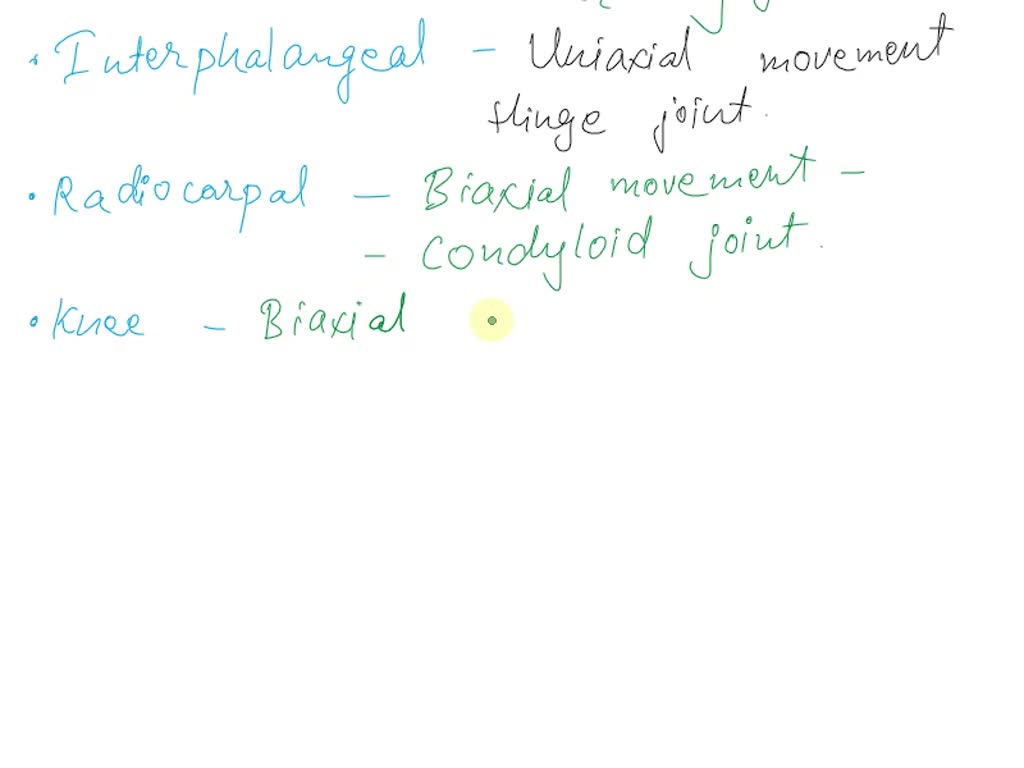 · Interphalangeal - Uniaxial movement
Hinge joint.
· Radiocarpal - Biaxial movement -
- Condyloid joint.
· Knee - Biaxial